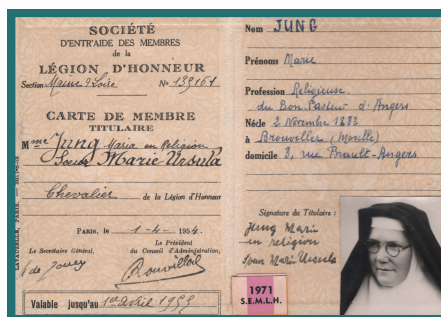 SOCIÉTÉ
D'ENTR'AIDE DES MEMBRES
de la
LÉGION D'HONNEUR
Section Maine & Loire No 139161
CARTE DE MEMBRE
TITULAIRE
Mme Jung Maria en Religion
Soeur Marie Ursula
Chevalier de la Légion d'Honneur
PARIS, le 1-4-1954.
Le Secrétaire Général,
Le Président
du Conseil d'Administration,
Valable jusqu'au 1er Avril 1955
Nom JUNG
Prénoms Marie
Profession Religieuse
du Bon Pasteur d'Angers
Née le 2 Novembre 1883
à Brouveller (Moselle)
domicile 3, rue Brault-Angers
Signature du Titulaire :
Jung Marie
en religion
Soeur Marie Ursula
1971
S.E.M.L.H.